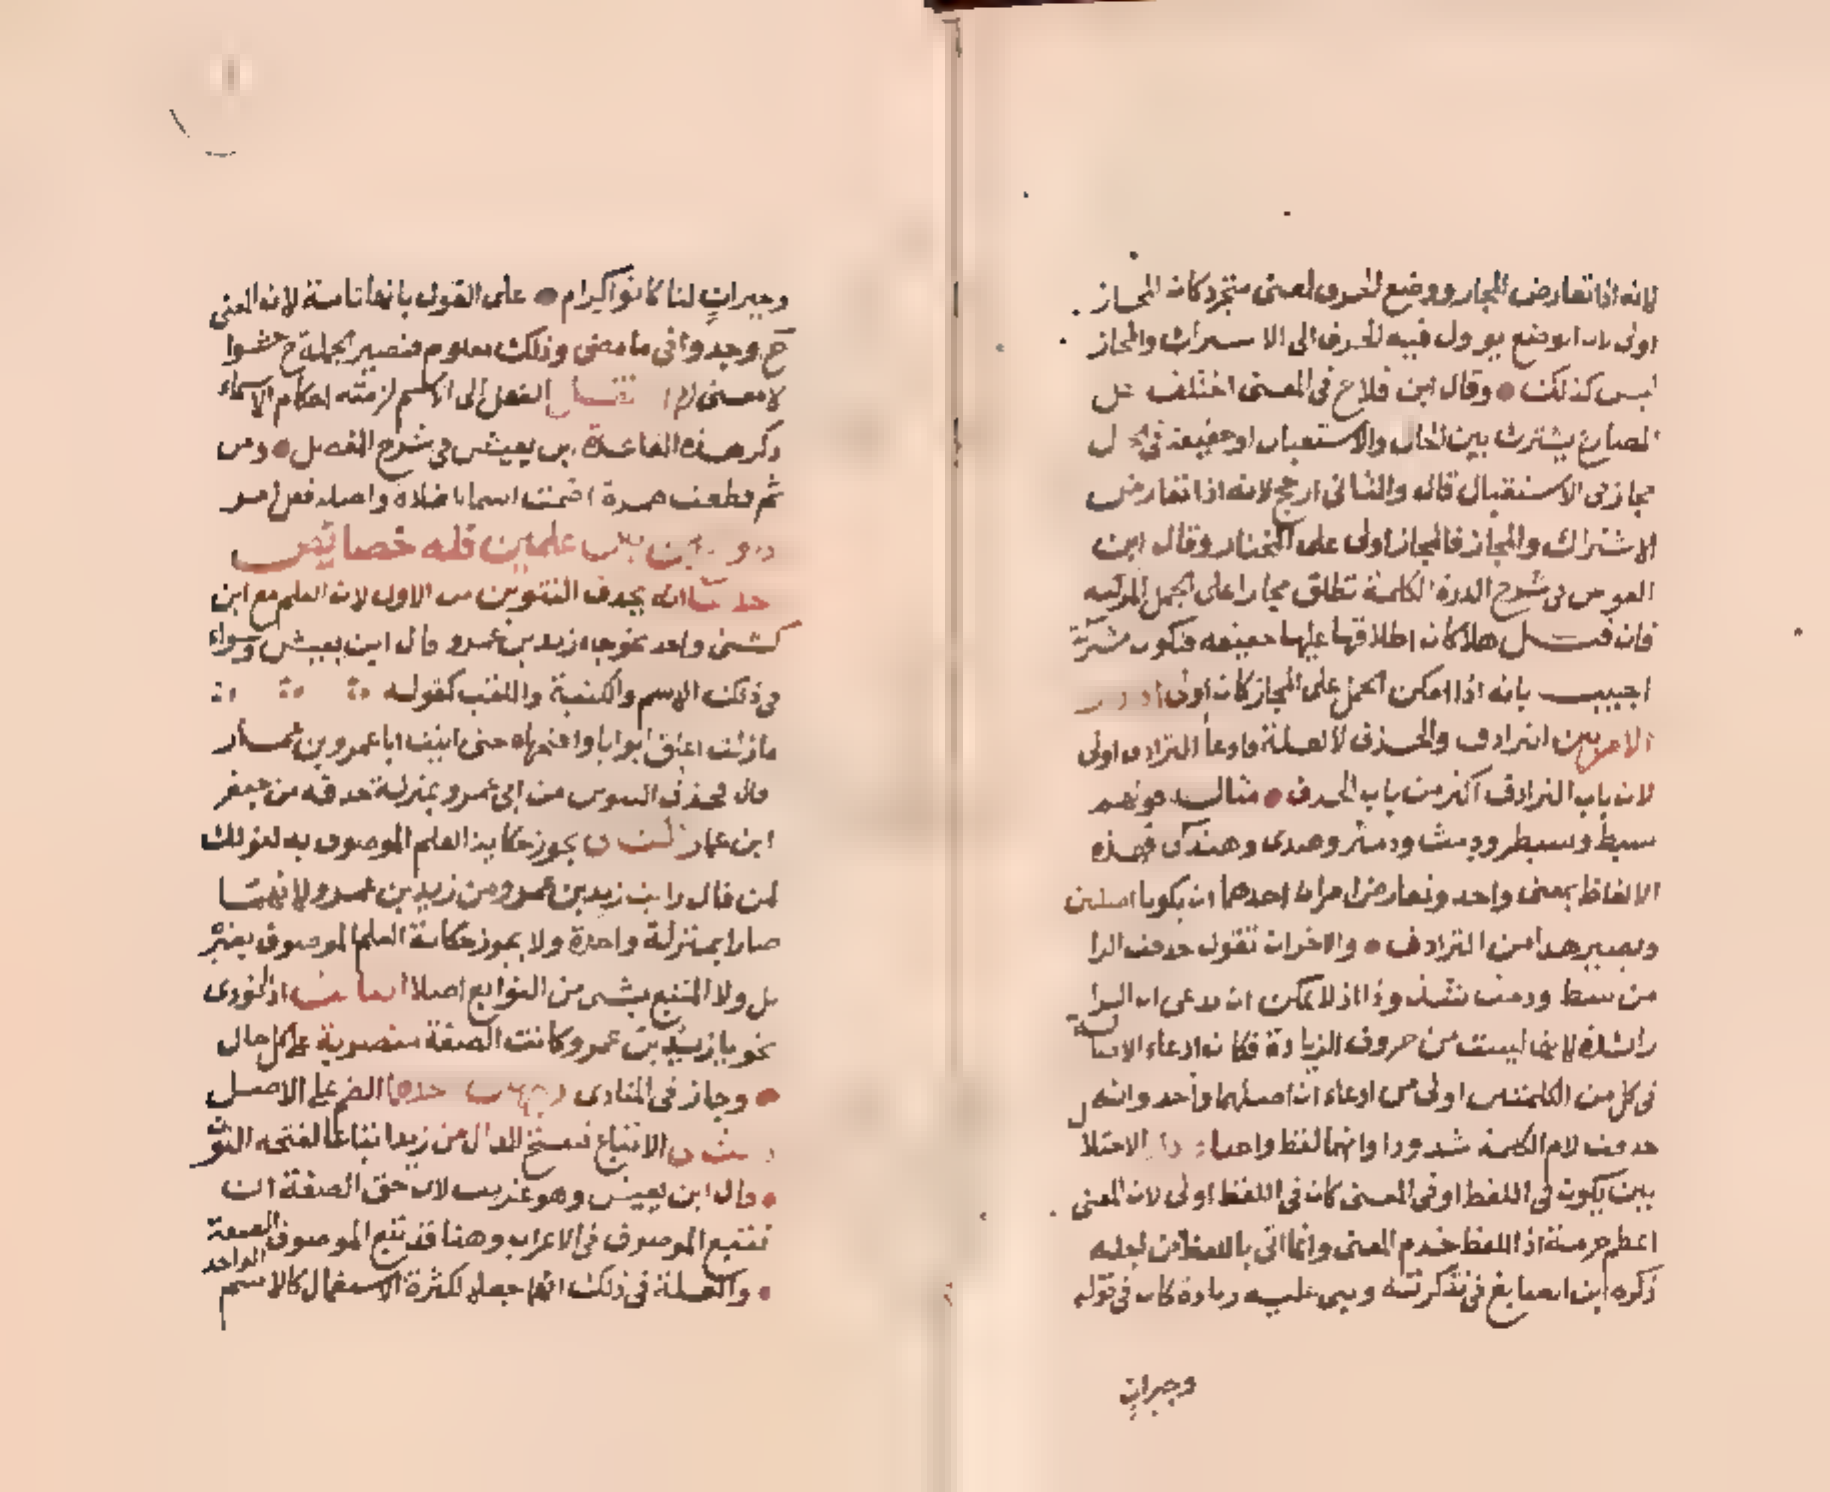 لانه اذا تعارض المجاز ووضع الحرف لمعنى متجرد كان المجاز
اولى لان الوضع يوول فيه الحرف الى الاشتراك والمجاز
ليس كذلك وقال ابن فلاح في المغنى اختلف هل
المضارع يشترك بين الحال والاستقبال او حقيقة في الحال
مجاز في الاستقبال قال والثاني ارجح لانه اذا تعارض
الاشتراك والمجاز فالمجاز اولى على المختار وقال ابن
القواس في شرح الدرة الكلمة تطلق مجازا على الجمل المركبة
فان قيل هلا كان اطلاقها عليها حقيقة فتكون مشتركة
اجيب بانه اذا امكن الحمل على المجاز كان اولى
الامر بين الترادف والحذف لا لعلة فادعا الترادف اولى
لان باب الترادف اكثر من باب الحذف مثاله قولهم
سبط وسبطر ودمث ودمثر وهندى وهندكى فهذه
الالفاظ بمعنى واحد وتعارض امران احدهما ان يكونا اصلين
ويصير هذا من الترادف والاخر ان تقول حذفت الرا
من سبط ودمث شذوذا اذ لا يمكن ان يدعى ان الرا
زائدة لانها ليست من حروف الزيادة فكان ادعاء الاصالة
في كل من الكلمتين اولى من ادعاء ان اصلهما واحد وانه
حذفت لام الكلمة شذوذا وانهما لفظ واحد اذا دار الاختلال
بين يكون في اللفظ او في المعنى كان في اللفظ اولى لان المعنى
اعظم حرمة اذ اللفظ خدم المعنى وانما اتى باللفظ من اجله
ذكره ابن الصايغ في تذكرته وبنى عليه زيادة كان في قوله
وجيرانٍ
وجيرانٍ لنا كانوا كرام على القول بانها تامة لان المعنى
ح وجدوا في ما مضى وذلك معلوم فتصير الجملة ح حشوا
لا معنى لها نقل الفعل الى الاسم لزمته احكام الاسماء
ذكر هذه القاعدة ابن يعيش في شرح المفصل ومن
ثم قطعت همزة اصمت اسما لفلاة واصله فعل امر
وقع ابن بين علمين فله خصائص
احدها انه يحذف التنوين من الاول لان العلم مع ابن
كشى واحد نحو جاء زيد بن عمرو قال ابن يعيش وسواء
في ذلك الاسم والكنية واللقب كقوله
ما زلت اغلق ابوابا وافتحها حتى اتيت ابا عمرو بن عمار
قال فحذف التنوين من ابى عمرو بمنزلة حذفه من جعفر
ابن عمار الثانى يجوز حكاية العلم الموصوف به كقولك
لمن قال رايت زيد بن عمرو من زيد بن عمرو لانهما
صارا بمنزلة واحدة ولا يجوز حكاية العلم الموصوف بغير
بل ولا المتبع بشى من التوابع اصلا الثالث اذا نودى
نحو يا زيد بن عمرو كانت الصفة منصوبة على كل حال
وجاز في المنادى وجهان احدهما الضم على الاصل
والثانى الاتباع فتفتح الدال من زيد اتباعا لفتحة النون
قال ابن يعيش وهو غريب لان حق الصفة ان
تتبع الموصوف في الاعراب وهنا قد تبع الموصوف الصفة
والعلة في ذلك انهما جعلا لكثرة الاستعمال كالاسم الواحد